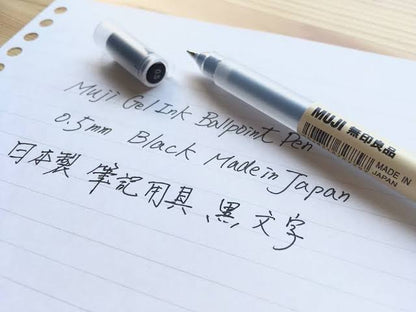 Muji Gel Ink Ballpoint Pen
0.5mm Black Made in Japan
日本製 筆記用具、黒,文字
MUJI 無印良品
MADE IN
JAPAN